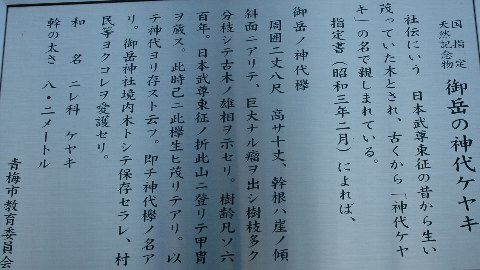 国指定
天然記念物
御岳の神代ケヤキ
社伝にいう 日本武尊東征の昔から生い
茂っていた木とされ、古くから「神代ケヤ
キ」の名で親しまれている。
指定書(昭和三年二月)によれば、
御岳ノ神代欅
周囲二丈八尺 高サ十丈、幹根ハ崖ノ傾
斜面ニアリテ、巨大ナル瘤ヲ出シ樹枝多ク
分枝シテ古木ノ雄相ヲ示セリ。樹齢凡ソ六
百年。日本武尊東征ノ折此山ニ登リテ甲冑
ヲ蔵ス。此時已ニ此欅生ヒ茂リテアリ。以
テ神代ヨリ存スト云フ。即チ神代欅ノ名ア
リ。御岳神社境内木トシテ保存セラレ、村
民等ヨクコレヲ愛護セリ。
和名 ニレ科 ケヤキ
幹の太さ 八・二メートル
青梅市教育委員会